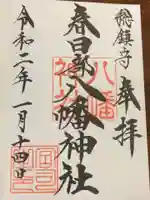 総鎮守
奉拝
春日部八幡神社
八幡
神社
令和二年一月十四日